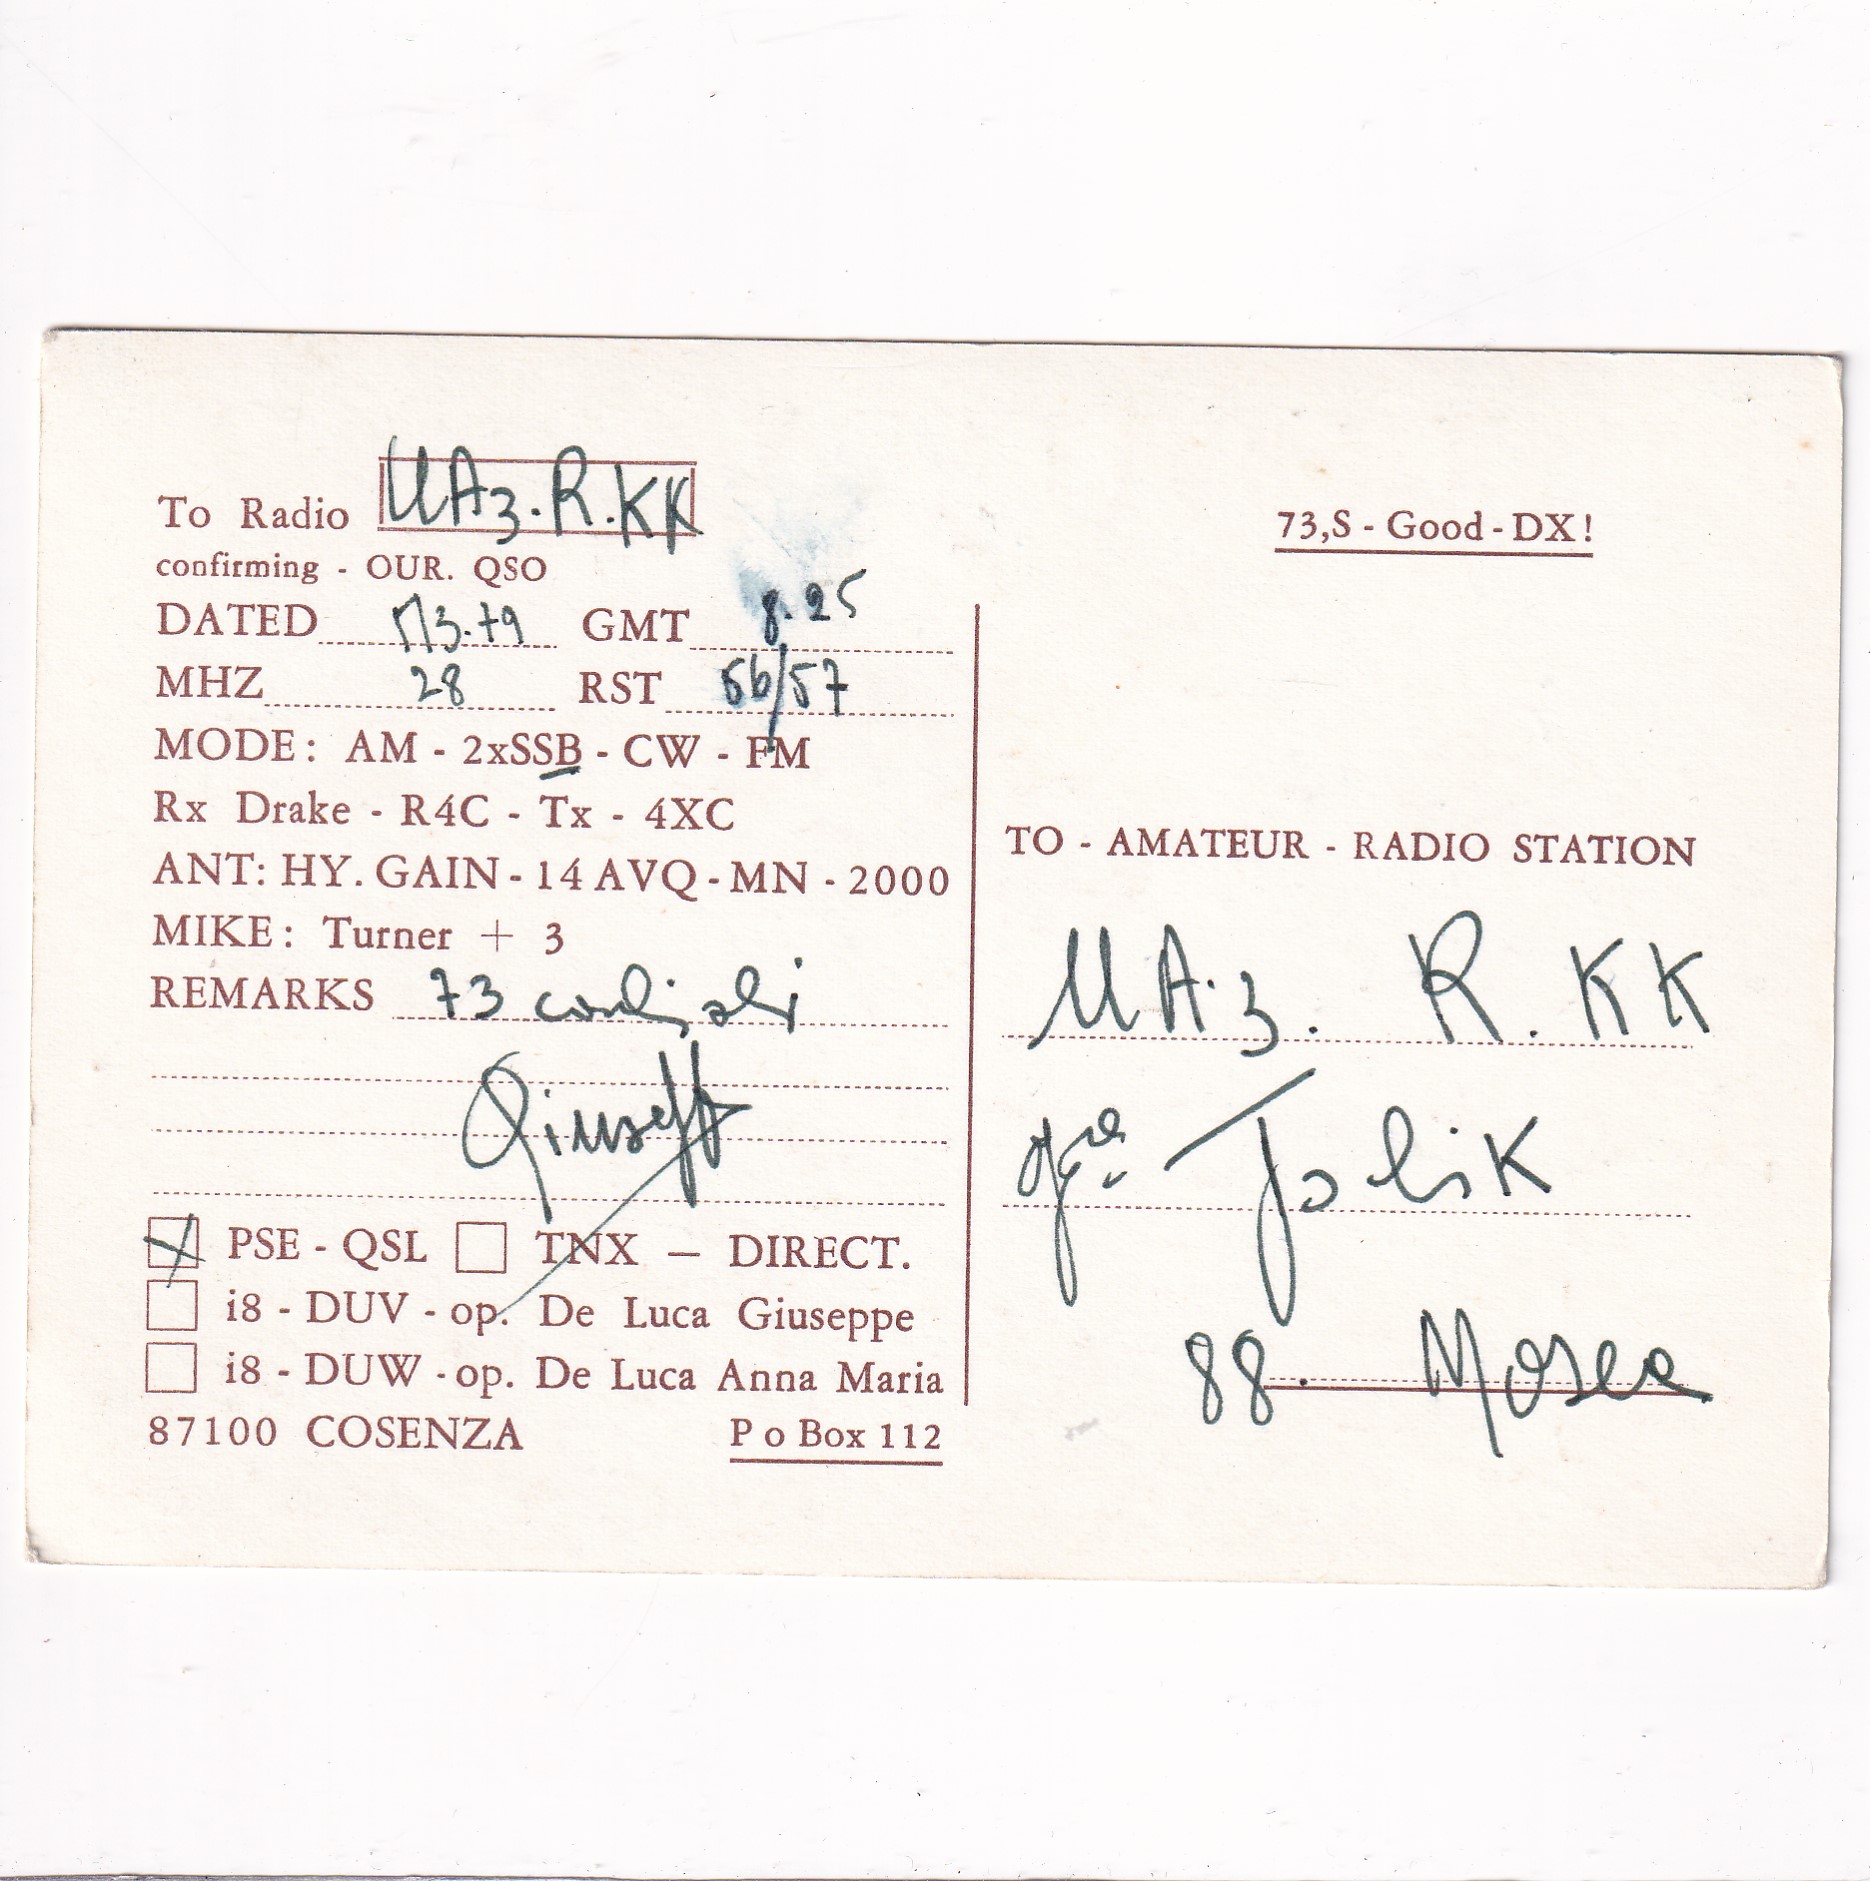 To Radio UA3.R.KK
confirming - OUR. QSO
DATED GMT 8.25
MHZ 28 RST 56/57
MODE: AM - 2xSSB - CW - FM
Rx Drake - R4C - Tx - 4XC
ANT: HY. GAIN - 14 AVQ - MN - 2000
MIKE: Turner + 3
REMARKS 73 cordiali
Giuseppe
PSE - QSL TNX — DIRECT.
i8 - DUV - op. De Luca Giuseppe
i8 - DUW - op. De Luca Anna Maria
87100 COSENZA P o Box 112
73,S - Good - DX!
TO - AMATEUR - RADIO STATION
UA.3. R. KK
Tolik
88. Mosca